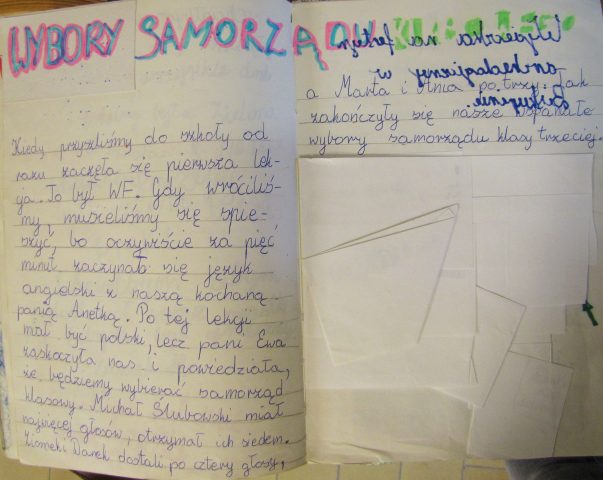 WYBORY SAMORZĄDU
Kiedy przyszliśmy do szkoły od
razu zaczęła się pierwsza lek-
cja. To był WF. Gdy wróciliś-
my musieliśmy się spie-
szyć, bo oczywiście za pięć
minut zaczynał się język
angielski z naszą kochaną
panią Anetką. Po tej lekcji
miał być polski, lecz pani Ewa
zaskoczyła nas i powiedziała,
że będziemy wybierać samorząd
klasowy. Michał Ślubowski miał
najwięcej głosów, otrzymał ich siedem.
Ziomek i Darek dostali po cztery głosy,
Wycieczka na festyn
archeologiczny w
Biskupinie.
a Marta i Ania po trzy. Tak
zakończyły się nasze wspaniałe
wybory samorządu klasy trzeciej.